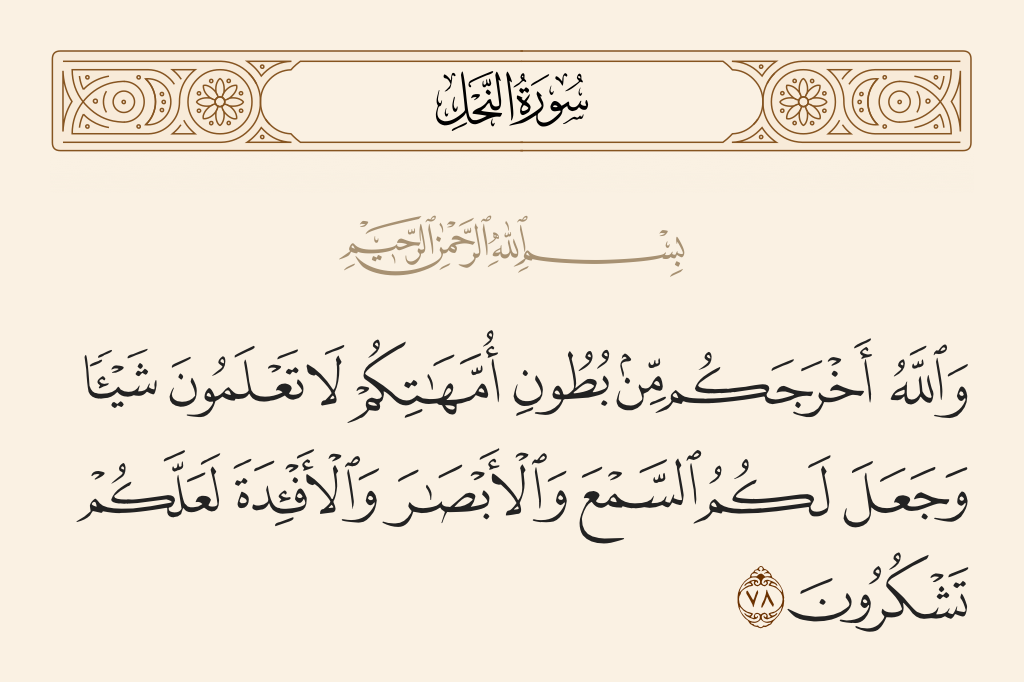 سُورَةُ النَّحْلِ
بِسْمِ ٱللَّهِ ٱلرَّحْمَٰنِ ٱلرَّحِيمِ
وَٱللَّهُ أَخْرَجَكُم مِّنۢ بُطُونِ أُمَّهَٰتِكُمْ لَا تَعْلَمُونَ شَيْـًٔا
وَجَعَلَ لَكُمُ ٱلسَّمْعَ وَٱلْأَبْصَٰرَ وَٱلْأَفْـِٔدَةَ لَعَلَّكُمْ
تَشْكُرُونَ ٧٨